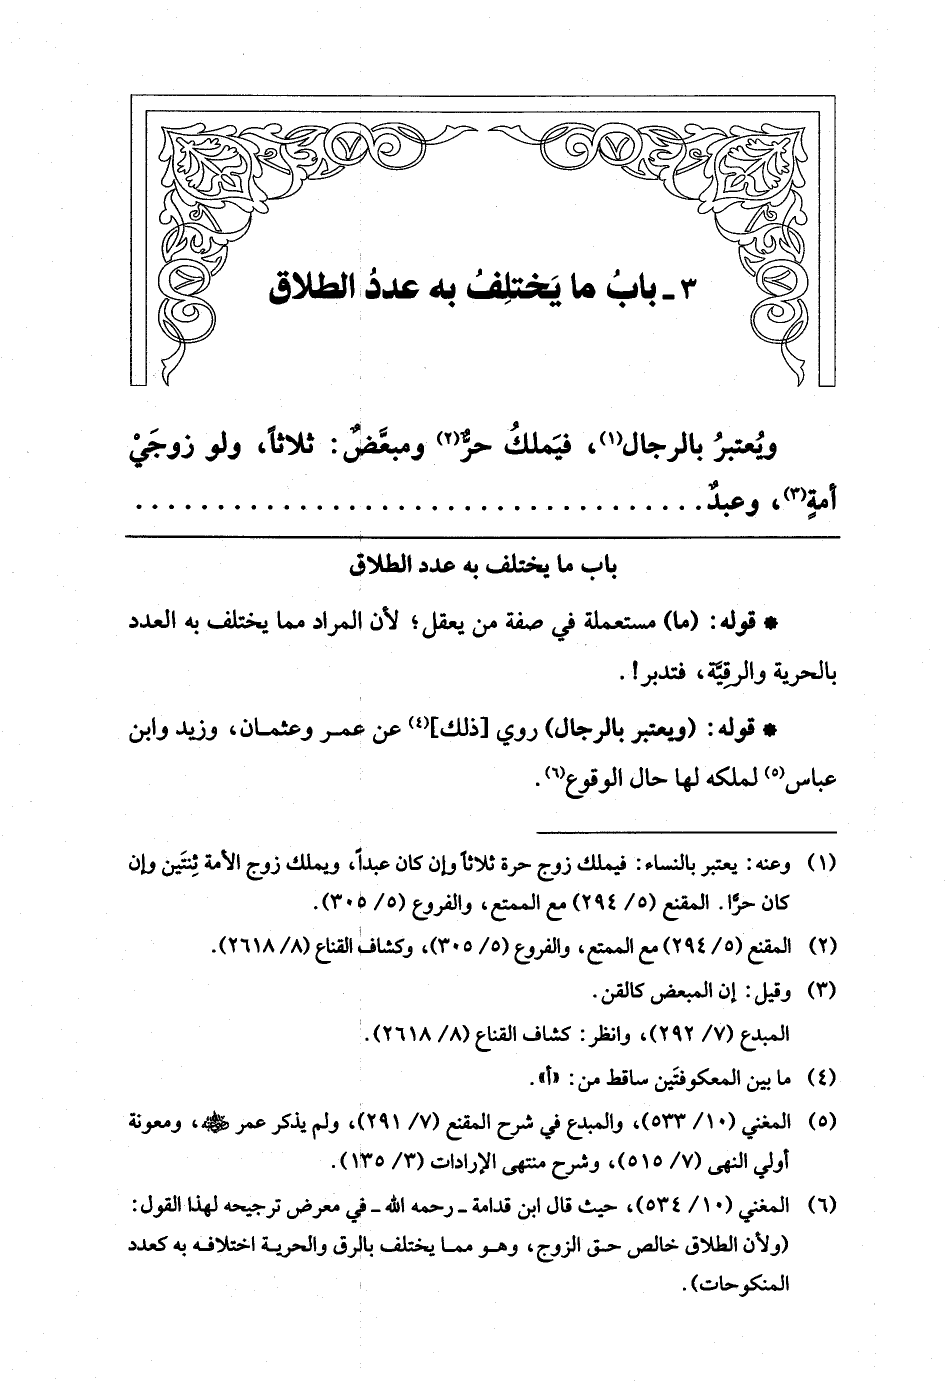 ٣ ـ بابُ ما يَختلِفُ به عددُ الطلاق
ويُعتبرُ بالرجال(١)، فيَملكُ حرٌّ(٢) ومبعَّضٌ: ثلاثاً، ولو زوجَيْ
أمةٍ(٣)، وعبدٌ . . . . . . . . . . . . . . . . . . . . . . . . . . . . . . . . . .
باب ما يختلف به عدد الطلاق
* قوله: (ما) مستعملة في صفة من يعقل؛ لأن المراد مما يختلف به العدد
بالحرية والرقِيَّة، فتدبر!.
* قوله: (ويعتبر بالرجال) روي [ذلك](٤) عن عمر وعثمان، وزيد وابن
عباس(٥) لملكه لها حال الوقوع(٦).
(١) وعنه: يعتبر بالنساء: فيملك زوج حرة ثلاثاً وإن كان عبداً، ويملك زوج الأمة ثِنتَين وإن
كان حرًّا. المقنع (٥/ ٢٩٤) مع الممتع، والفروع (٥/ ٣٠٥).
(٢) المقنع (٥/ ٢٩٤) مع الممتع، والفروع (٥/ ٣٠٥)، وكشاف القناع (٨/ ٢٦١٨).
(٣) وقيل: إن المبعض كالقن.
المبدع (٧/ ٢٩٢)، وانظر: كشاف القناع (٨/ ٢٦١٨).
(٤) ما بين المعكوفتَين ساقط من: «أ».
(٥) المغني (١٠/ ٥٣٣)، والمبدع في شرح المقنع (٧/ ٢٩١)، ولم يذكر عمر ﷺ، ومعونة
أولي النهى (٧/ ٥١٥)، وشرح منتهى الإرادات (٣/ ١٣٥).
(٦) المغني (١٠/ ٥٣٤)، حيث قال ابن قدامة ـ رحمه الله ـ في معرض ترجيحه لهذا القول:
(ولأن الطلاق خالص حق الزوج، وهو مما يختلف بالرق والحرية اختلافه به كعدد
المنكوحات).